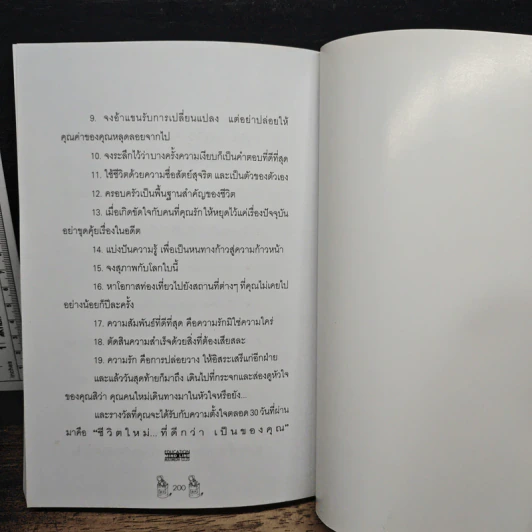 9. จงอ้าแขนรับการเปลี่ยนแปลง แต่อย่าปล่อยให้
คุณค่าของคุณหลุดลอยจากไป
10. จงระลึกไว้ว่าบางครั้งความเงียบก็เป็นคำตอบที่ดีที่สุด
11. ใช้ชีวิตด้วยความซื่อสัตย์สุจริต และเป็นตัวของตัวเอง
12. ครอบครัวเป็นพื้นฐานสำคัญของชีวิต
13. เมื่อเกิดขัดใจกับคนที่คุณรักให้หยุดไว้แค่เรื่องปัจจุบัน
อย่าขุดคุ้ยเรื่องในอดีต
14. แบ่งปันความรู้ เพื่อเป็นหนทางก้าวสู่ความก้าวหน้า
15. จงสุภาพกับโลกใบนี้
16. หาโอกาสท่องเที่ยวไปยังสถานที่ต่างๆ ที่คุณไม่เคยไป
อย่างน้อยก็ปีละครั้ง
17. ความสัมพันธ์ที่ดีที่สุด คือความรักมิใช่ความใคร่
18. ตัดสินความสำเร็จด้วยสิ่งที่ต้องเสียสละ
19. ความรัก คือการปล่อยวาง ให้อิสระเสรีแก่อีกฝ่าย
และแล้ววันสุดท้ายก็มาถึง เดินไปที่กระจกและส่องดูหัวใจ
ของคุณสิว่า คุณคนใหม่เดินทางมาในหัวใจหรือยัง...
และรางวัลที่คุณจะได้รับกับความตั้งใจตลอด 30 วันที่ผ่าน
มาคือ "ชีวิตใหม่...ที่ดีกว่า เป็นของคุณ"
EDUCATION
MIND LIND
200